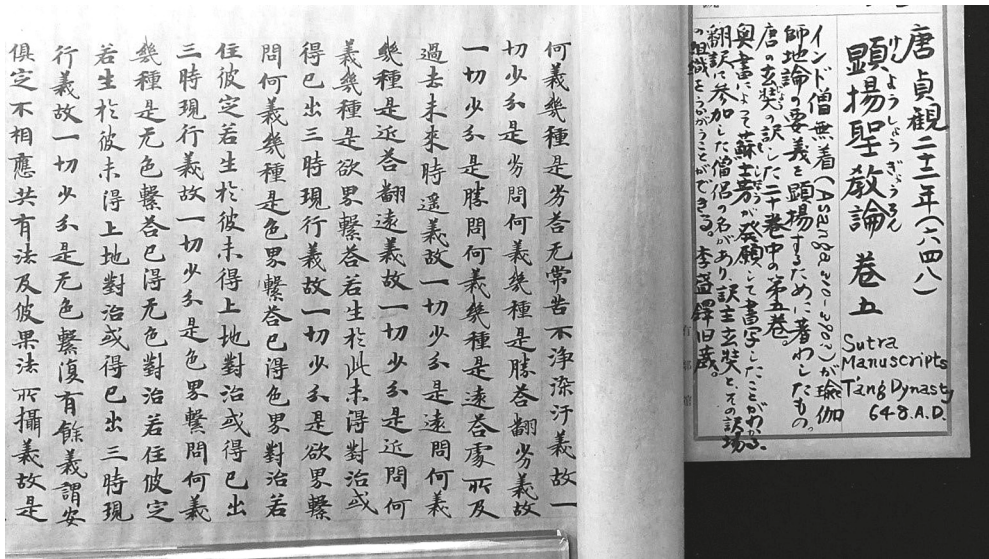 唐 貞觀二十二年(六四八)
けんようしょうぎょうろん
顯揚聖教論 巻五
Sutra
Manuscripts
T'ang Dynasty
648.A.D.
インド僧無着(Asanga 310-390?)が瑜伽
師地論の要義を顕揚するために著わしたもの。
唐の玄奘の訳した二十巻中の第五巻
奥書によって蘇士方が発願して書写したことがわかる、
翻訳に参加した僧侶の名があり訳主玄奘と、その訳場
の組織をうかがうことができる。李盛鐸旧蔵。
何義幾種是劣荅无常苦不淨染汙義故一
切少分是劣問何義幾種是勝荅翻劣義故
一切少分是勝問何義幾種是遠荅處所及
過去未來時遥義故一切少分是遠問何義
幾種是近荅翻遠義故一切少分是近問何
義幾種是欲界繫荅若生於此未得對治或
得已出三時現行義故一切少分是欲界繫
問何義幾種是色界繫荅已得色界對治若
住彼定若生於彼未得上地對治或得已出
三時現行義故一切少分是色界繫問何義
幾種是无色繫荅已得无色對治若住彼定
若生於彼未得上地對治或得已出三時現
行義故一切少分是无色繫復有餘義謂安
俱定不相應共有法及彼果法所攝義故是